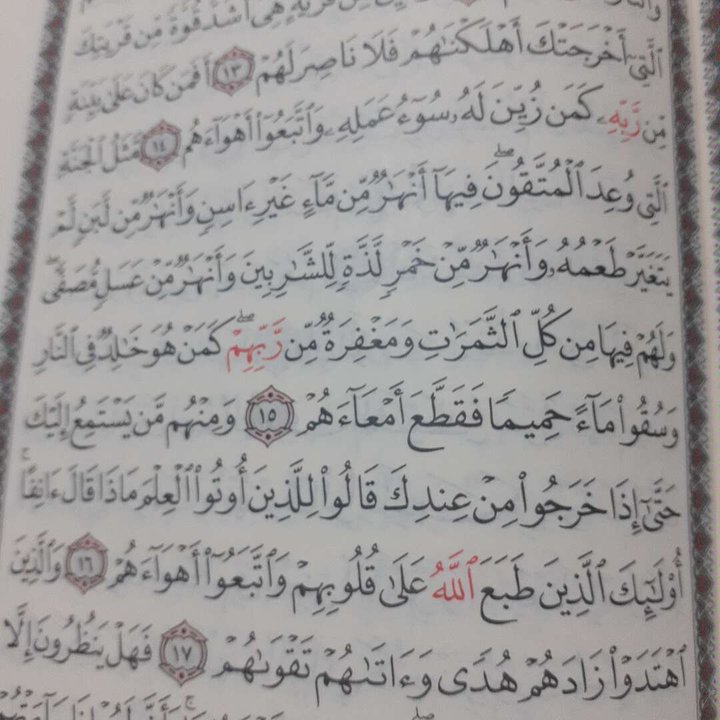 قرية هي أشد قوة من قريتك
ٱلَّتِىٓ أَخۡرَجَتۡكَ أَهۡلَكۡنَٰهُمۡ فَلَا نَاصِرَ لَهُمۡ ١٣ أَفَمَن كَانَ عَلَىٰ بَيِّنَةٖ
مِّن رَّبِّهِۦ كَمَن زُيِّنَ لَهُۥ سُوٓءُ عَمَلِهِۦ وَٱتَّبَعُوٓاْ أَهۡوَآءَهُم ١٤ مَّثَلُ ٱلۡجَنَّةِ
ٱلَّتِى وُعِدَ ٱلۡمُتَّقُونَۖ فِيهَآ أَنۡهَٰرٞ مِّن مَّآءٍ غَيۡرِ ءَاسِنٖ وَأَنۡهَٰرٞ مِّن لَّبَنٖ لَّمۡ
يَتَغَيَّرۡ طَعۡمُهُۥ وَأَنۡهَٰرٞ مِّنۡ خَمۡرٖ لَّذَّةٖ لِّلشَّٰرِبِينَ وَأَنۡهَٰرٞ مِّنۡ عَسَلٖ مُّصَفّٗىۖ
وَلَهُمۡ فِيهَا مِن كُلِّ ٱلثَّمَرَٰتِ وَمَغۡفِرَةٞ مِّن رَّبِّهِمۡۖ كَمَنۡ هُوَ خَٰلِدٞ فِى ٱلنَّارِ
وَسُقُواْ مَآءً حَمِيمٗا فَقَطَّعَ أَمۡعَآءَهُمۡ ١٥ وَمِنۡهُم مَّن يَسۡتَمِعُ إِلَيۡكَ
حَتَّىٰٓ إِذَا خَرَجُواْ مِنۡ عِندِكَ قَالُواْ لِلَّذِينَ أُوتُواْ ٱلۡعِلۡمَ مَاذَا قَالَ ءَانِفًاۚ
أُوْلَٰٓئِكَ ٱلَّذِينَ طَبَعَ ٱللَّهُ عَلَىٰ قُلُوبِهِمۡ وَٱتَّبَعُوٓاْ أَهۡوَآءَهُمۡ ١٦ وَٱلَّذِينَ
ٱهۡتَدَوۡاْ زَادَهُمۡ هُدٗى وَءَاتَىٰهُمۡ تَقۡوَىٰهُمۡ ١٧ فَهَلۡ يَنظُرُونَ إِلَّا